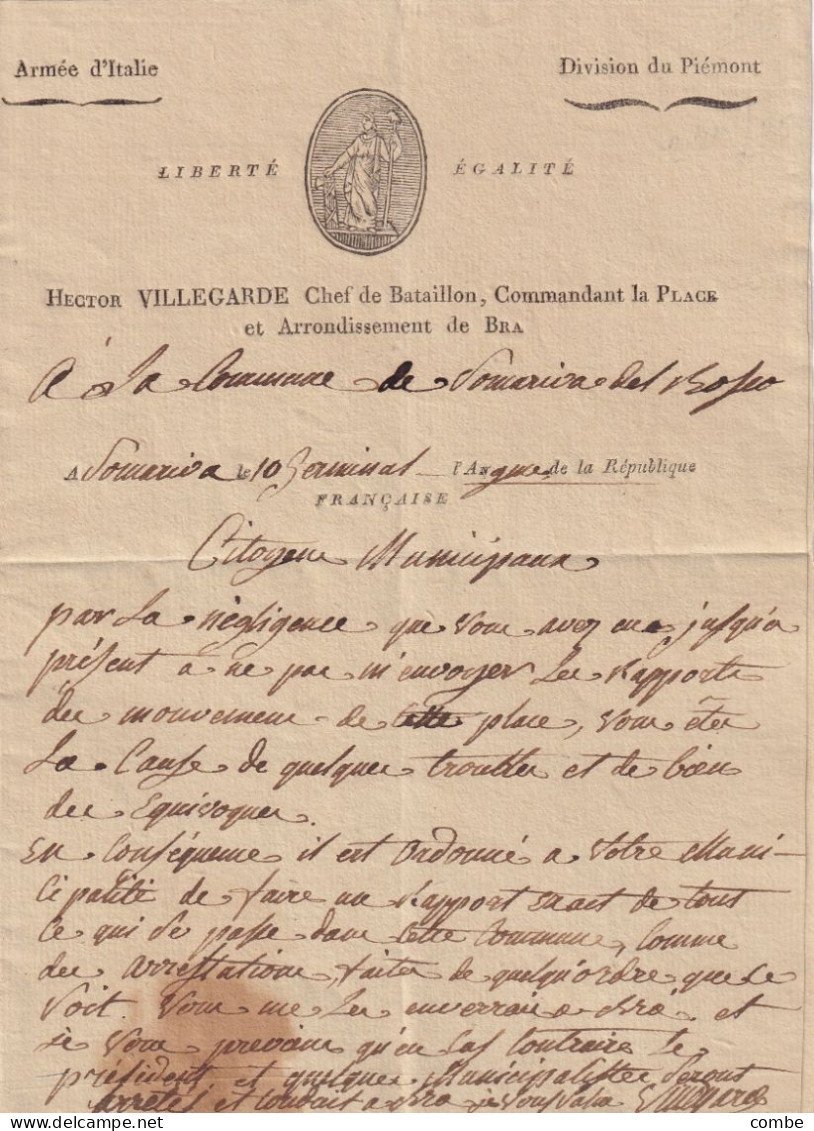 Armée d'Italie
Division du Piémont
LIBERTÉ
ÉGALITÉ
HECTOR VILLEGARDE Chef de Bataillon, Commandant la PLACE
et Arrondissement de BRA
A La Commune de Somariva del Bosco
A Somariva le 10 Germinal l'An 7me de la République
FRANÇAISE
Citoyens Municipaux
par la négligence que vous avez eu jusqu'a
présent a ne pas m'envoyer les Rapports
des mouvemens de cette place, vous êtes
la Cause de quelques troubles et de bien
des Equivoques.
En Conséquence il est Ordonné a votre Muni-
cipalité de faire un Rapport exact de tout
ce qui se passe dans cette Commune, Comme
des arrestations, faites de quelqu'ordre que ce
soit. vous me les enverrai a Bra. et
je vous previens qu'en Cas Contraire le
président et quelques Municipalistes seront
arretés et conduit a Bra je vous salue Villegarde
combe